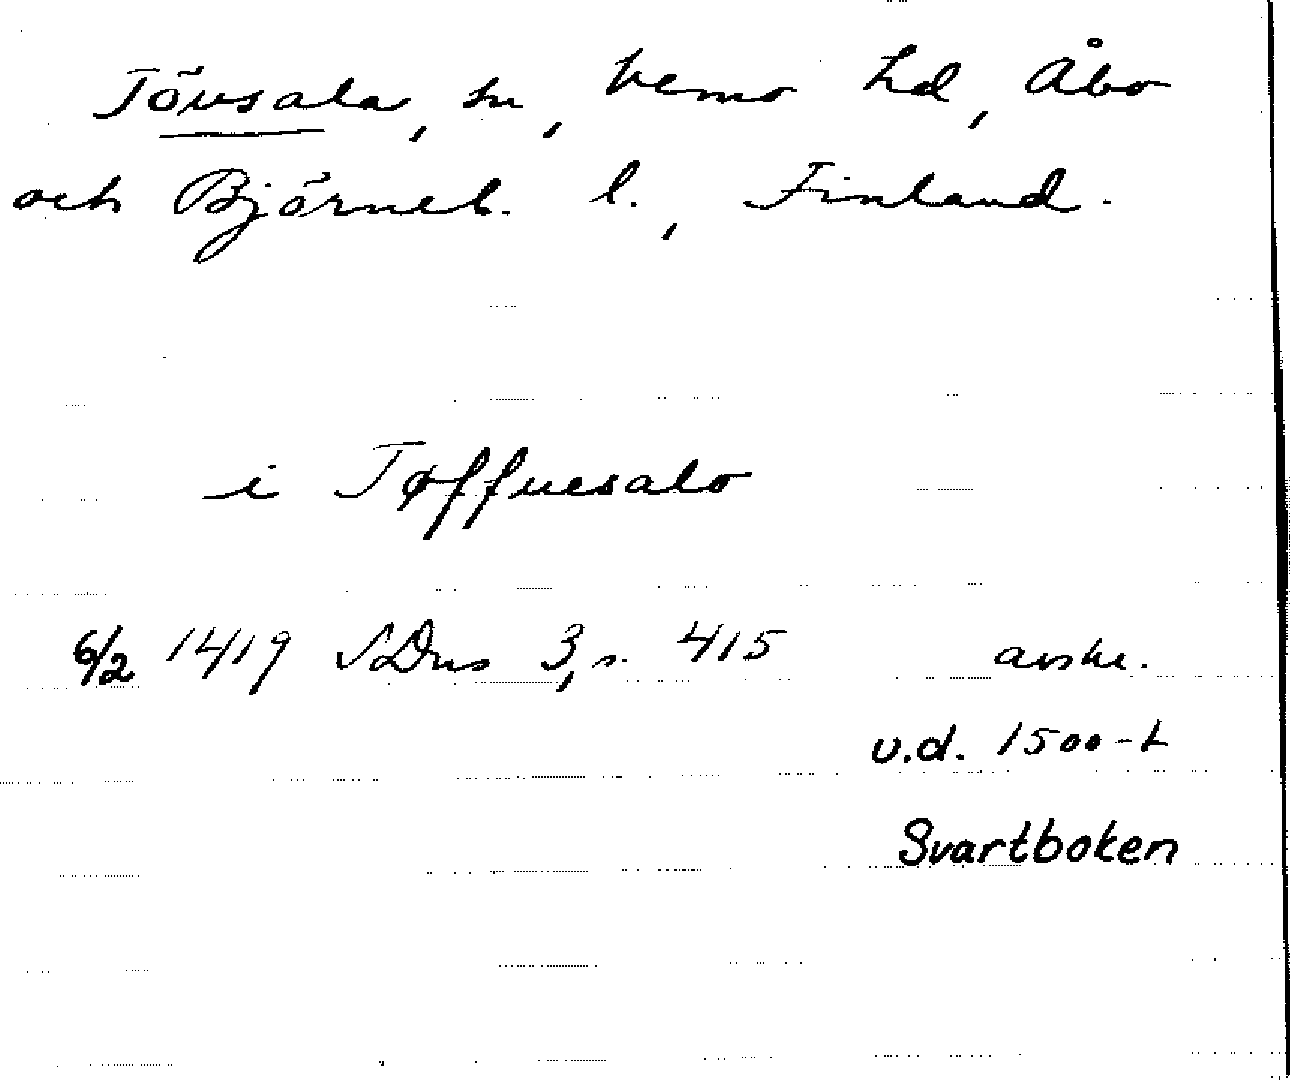 Tövsala, sn, Vemo hd, Åbo
och Björneb. l., Finland.
i Tøffuesalo
6/2 1419 SDns 3, s. 415 avskr.
v.d. 1500-t
Svartboken